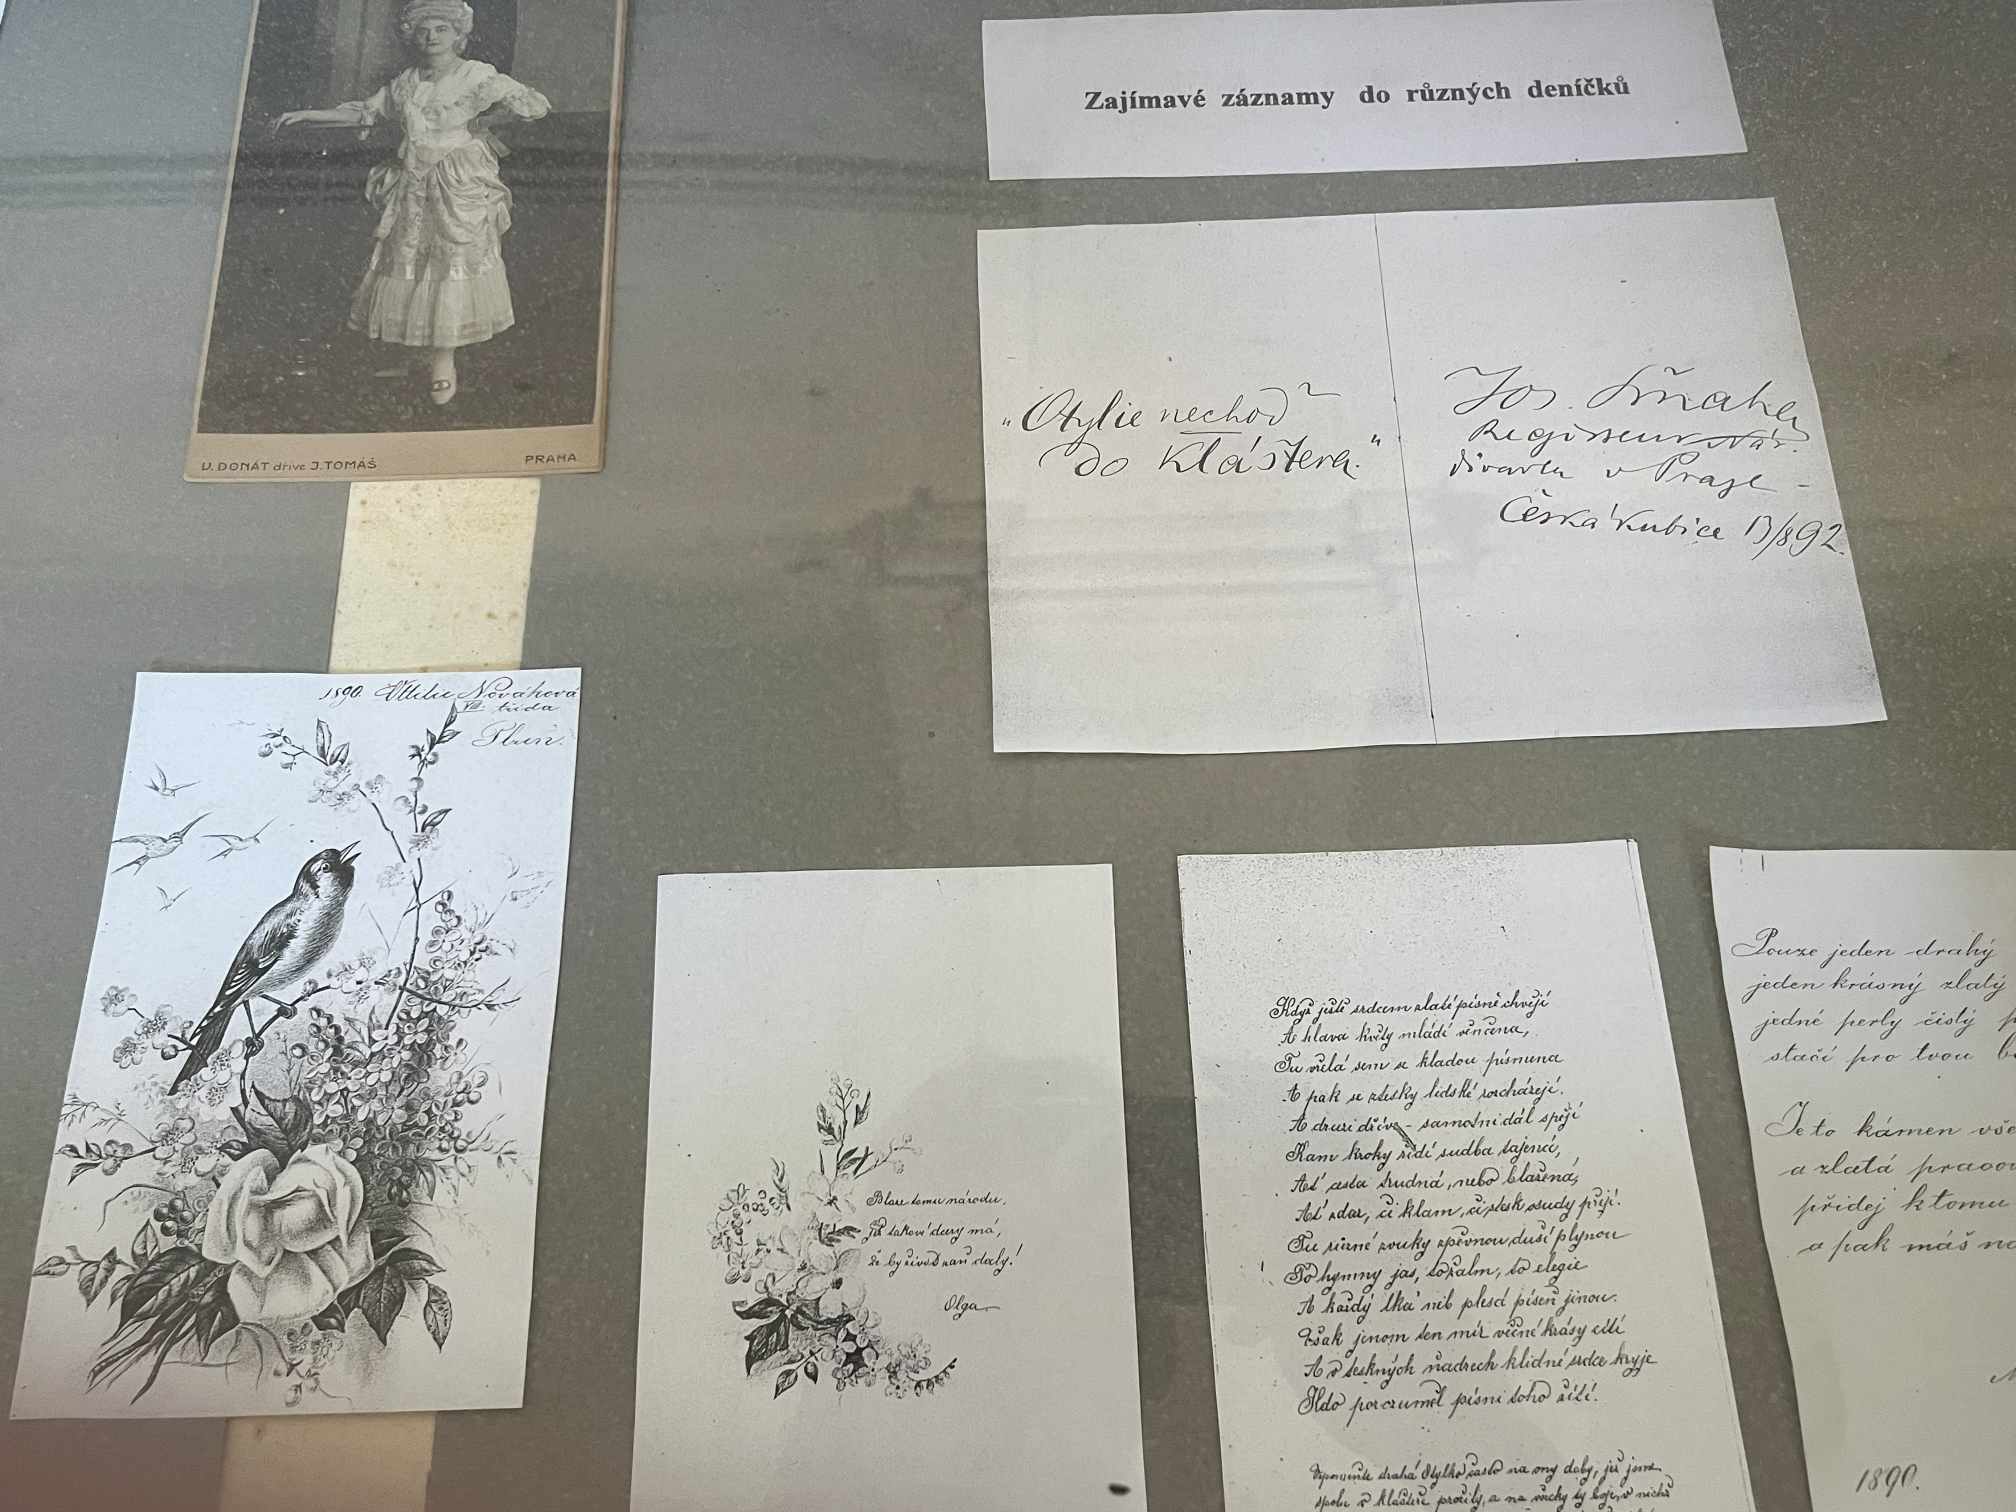 Zajímavé záznamy do různých deníčků
V. DONÁT dříve J. TOMÁŠ
PRAHA
„Otylie nechoď
do Kláštera."
Jos. Šmaha
Regisseur Nár.
divadla v Praze -
Česká Kubice 13/8 92.
1890. Ottilie Nováková
VIII. třída
Plzeň.
Blaze tomu národu,
jež takové dcery má,
že by život zaň daly!
Olga
Když ještě srdcem zlaté písně chvějí
A hlava květy mládí věnčena,
Tu vřelá sem se kladou písmena
A pak se stesky lidské rozcházejí.
A druzi dříve - samotni dál spějí
Kam kroky řídí sudba tajemná,
Ať cesta trudná, nebo blažená,
Ať zdar, či klam, či stesk osudy přejí.
Tu různé zvuky zpěvnou duší plynou
To hymny jas, to žalm, to elegie
A každý lká neb plesá píseň jinou.
Však jenom ten mír věčné krásy cítí
A v teskných ňadrech klidné srdce kryje
Kdo porozuměl písni toho žití.
Vzpomeňte drahá Otylko často na ony doby, jež jsme
spolu v klášteře prožily, a na všecky ty boje, v nichž
Pouze jeden drahý
jeden krásný zlatý
jedné perly čistý
stačí pro tvou
Je to kámen
a zlatá
přidej k tomu
a pak máš
1890.